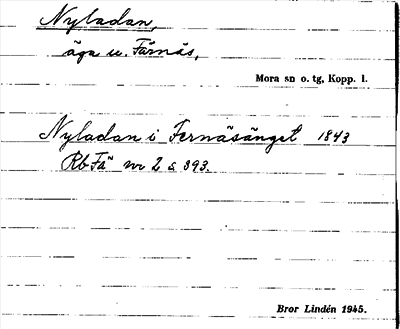 Nyladan,
äga u. Färnäs,
Mora sn o. tg, Kopp. l.
Nyladan i Fernäsänget 1843
Rb Fä nr 2 s 393.
Bror Lindén 1945.